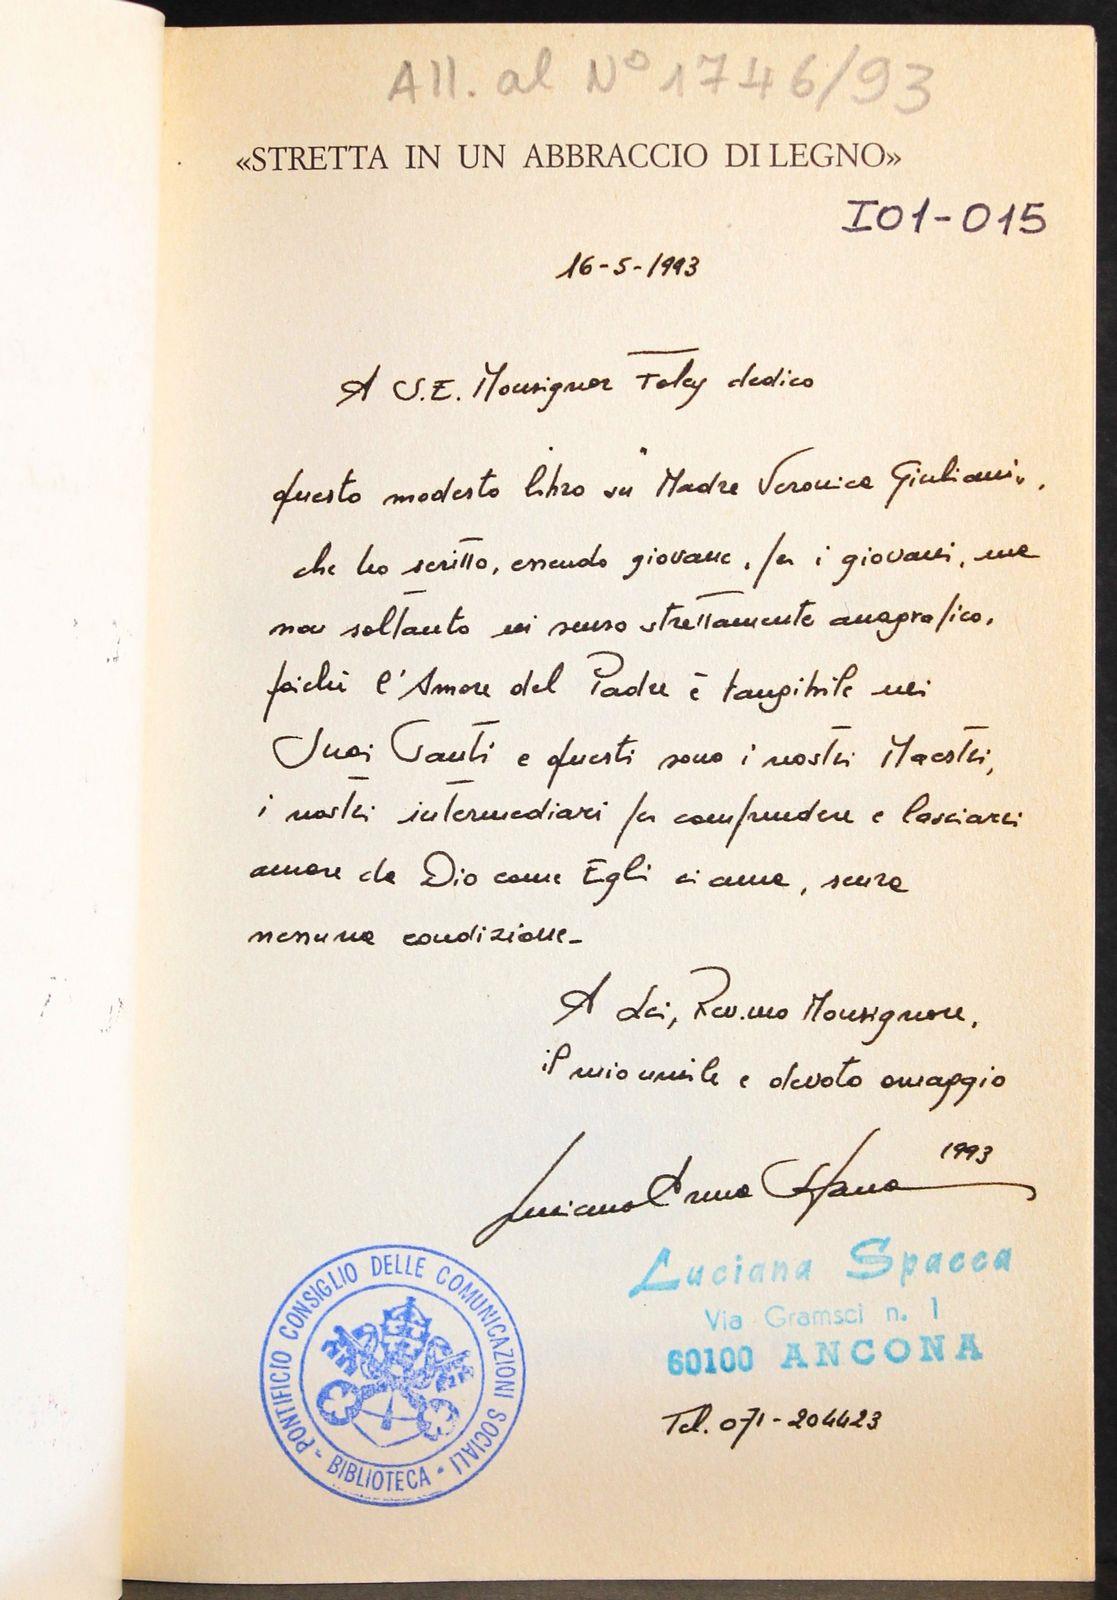 All. al N° 1746/93
«STRETTA IN UN ABBRACCIO DI LEGNO»
I01-015
16-5-1993
A S.E. Monsignor Foley dedico
questo modesto libro su "Madre Veronica Giuliani",
che ho scritto, essendo giovane, per i giovani, ma
non soltanto in senso strettamente anagrafico,
poiché l'Amore del Padre è tangibile nei
Suoi Santi e questi sono i nostri Maestri,
i nostri intermediari per comprendere e lasciarci
amare da Dio come Egli ci ama, senza
nessuna condizione-
A Lei, Rev.mo Monsignore,
il mio umile e devoto omaggio
Luciana Anna Spacca 1993
Luciana Spacca
Via Gramsci n. 1
60100 ANCONA
Tel. 071-204423
PONTIFICIO CONSIGLIO DELLE COMUNICAZIONI SOCIALI
- BIBLIOTECA -